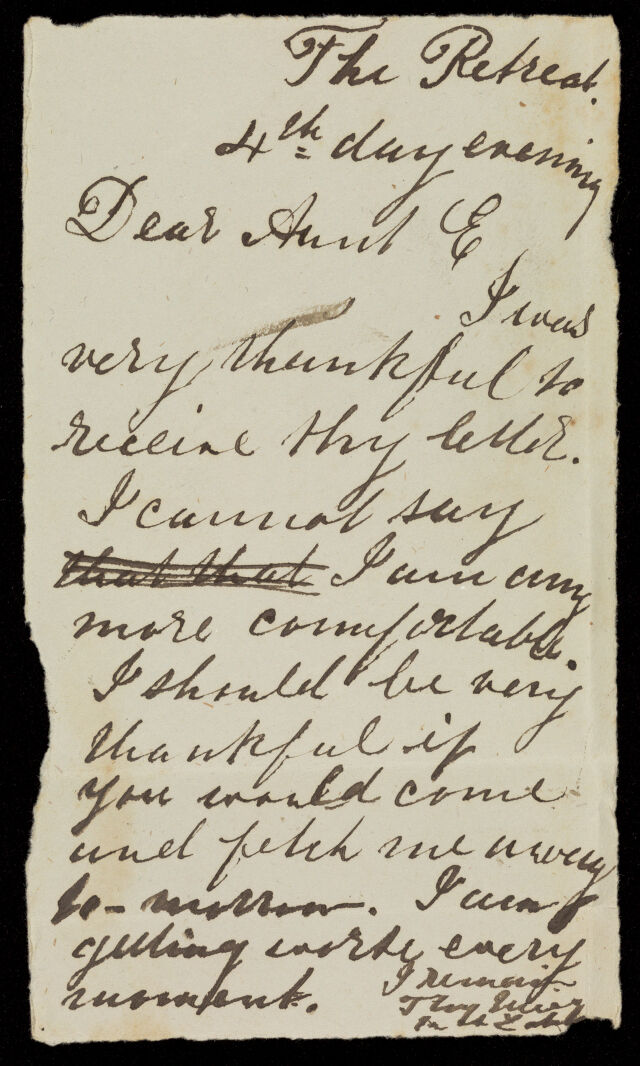 The Retreat.
4th day evening
Dear Aunt E
I was
very thankful to
receive thy letter.
I cannot say
that that I am any
more comfortable.
I should be very
thankful if
you would come
and fetch me away
to-morrow. I am
getting worse every
moment.
I remain
Thy